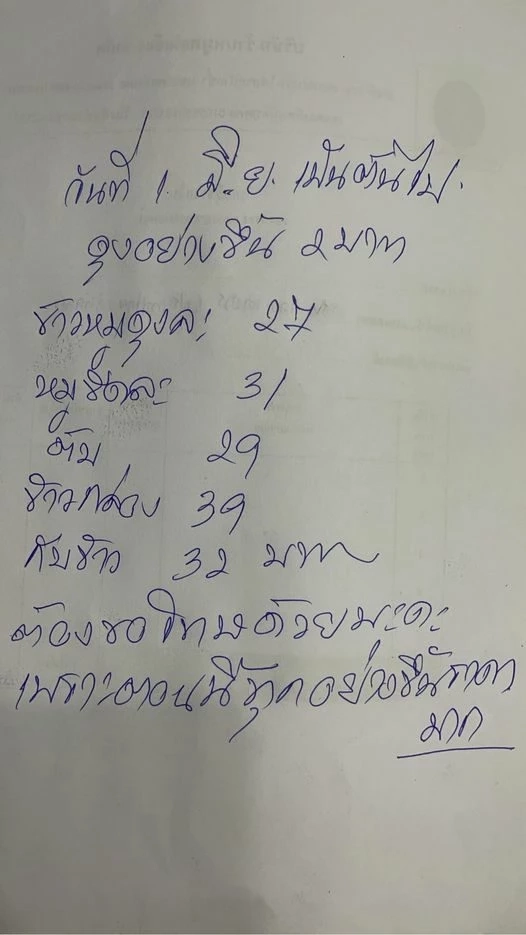 วันที่ 1. มิ.ย. เป็นต้นไป.
ถุงอย่างขึ้น 2 บาท
ข้าวหมถุงละ 27
หมูขีดละ 31
ตับ 29
ข้าวกล่อง 39
กับข้าว 32 บาท
ต้องขอโทษด้วยนะคะ
เพราะตอนนี้ทุกอย่างขึ้นราคา
มาก